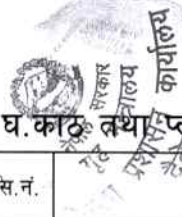 नेपाल सरकार
गृह मन्त्रालय
प्रशासन कार्यालय
घ.काठ तथा
सि.नं.